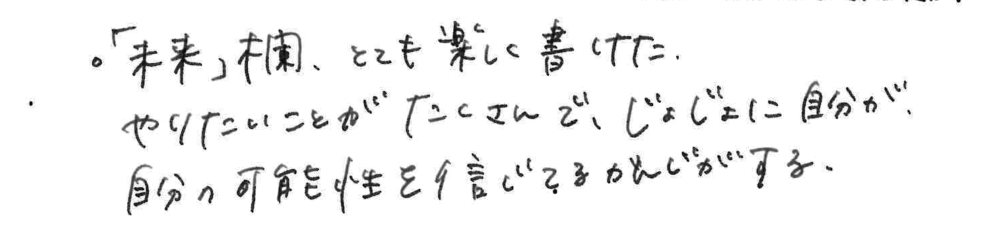 。「未来」欄、とても楽しく書けた.
やりたいことがたくさんで、じょじょに自分が、
自分の可能性を信じてるかんじがする.